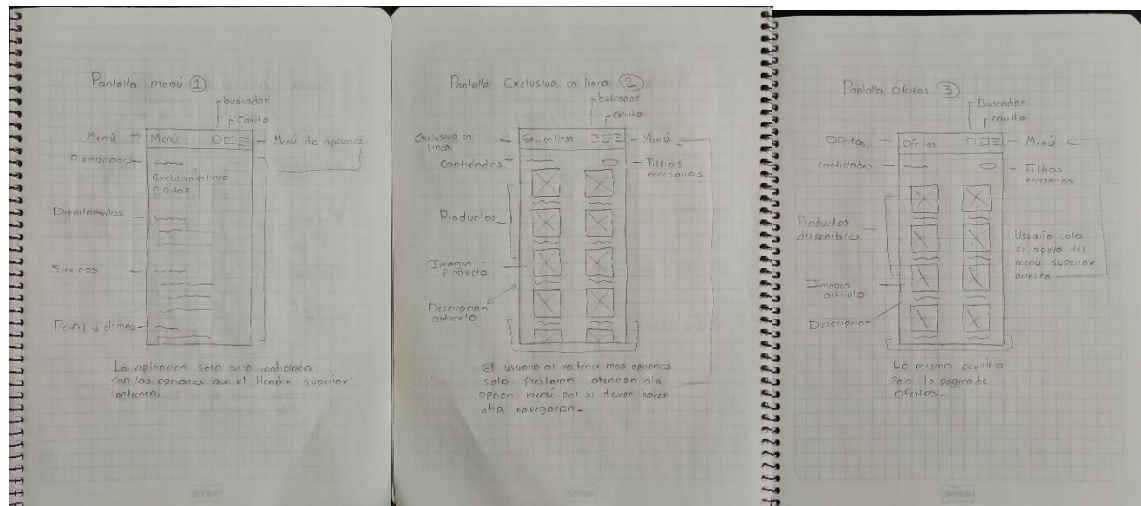 Pantalla menú 1
buscador
Carrito
Menú
Menú
Menú de opciones
Promociones
Exclusivo en linea
Ofertas
Departamentos
Servicios
Perfil y
La aplicacion solo será controlada
con las opciones que el Header superior
contienen.
Scribe
Pantalla Exclusivo en linea 2
buscador
Carrito
Exclusivo en
linea
Menú
Cantidades
Filtros
necesarios
Productos
Imagen
Producto
Descripcion
articulo
El usuario al no tener mas opciones
solo prestaran atencion a la
opcion menú por si desean hacer
otra navegacion.
Scribe
Pantalla Ofertas 3
Buscador
Carrito
Ofertas
Ofertas
Menú
Cantidades
Filtros
necesarios
Productos
disponibles
Usuario solo
se apolla del
menú superior
derecho
Imagen
articulo
Lo mismo
para la pagina de
Ofertas.
Scribe